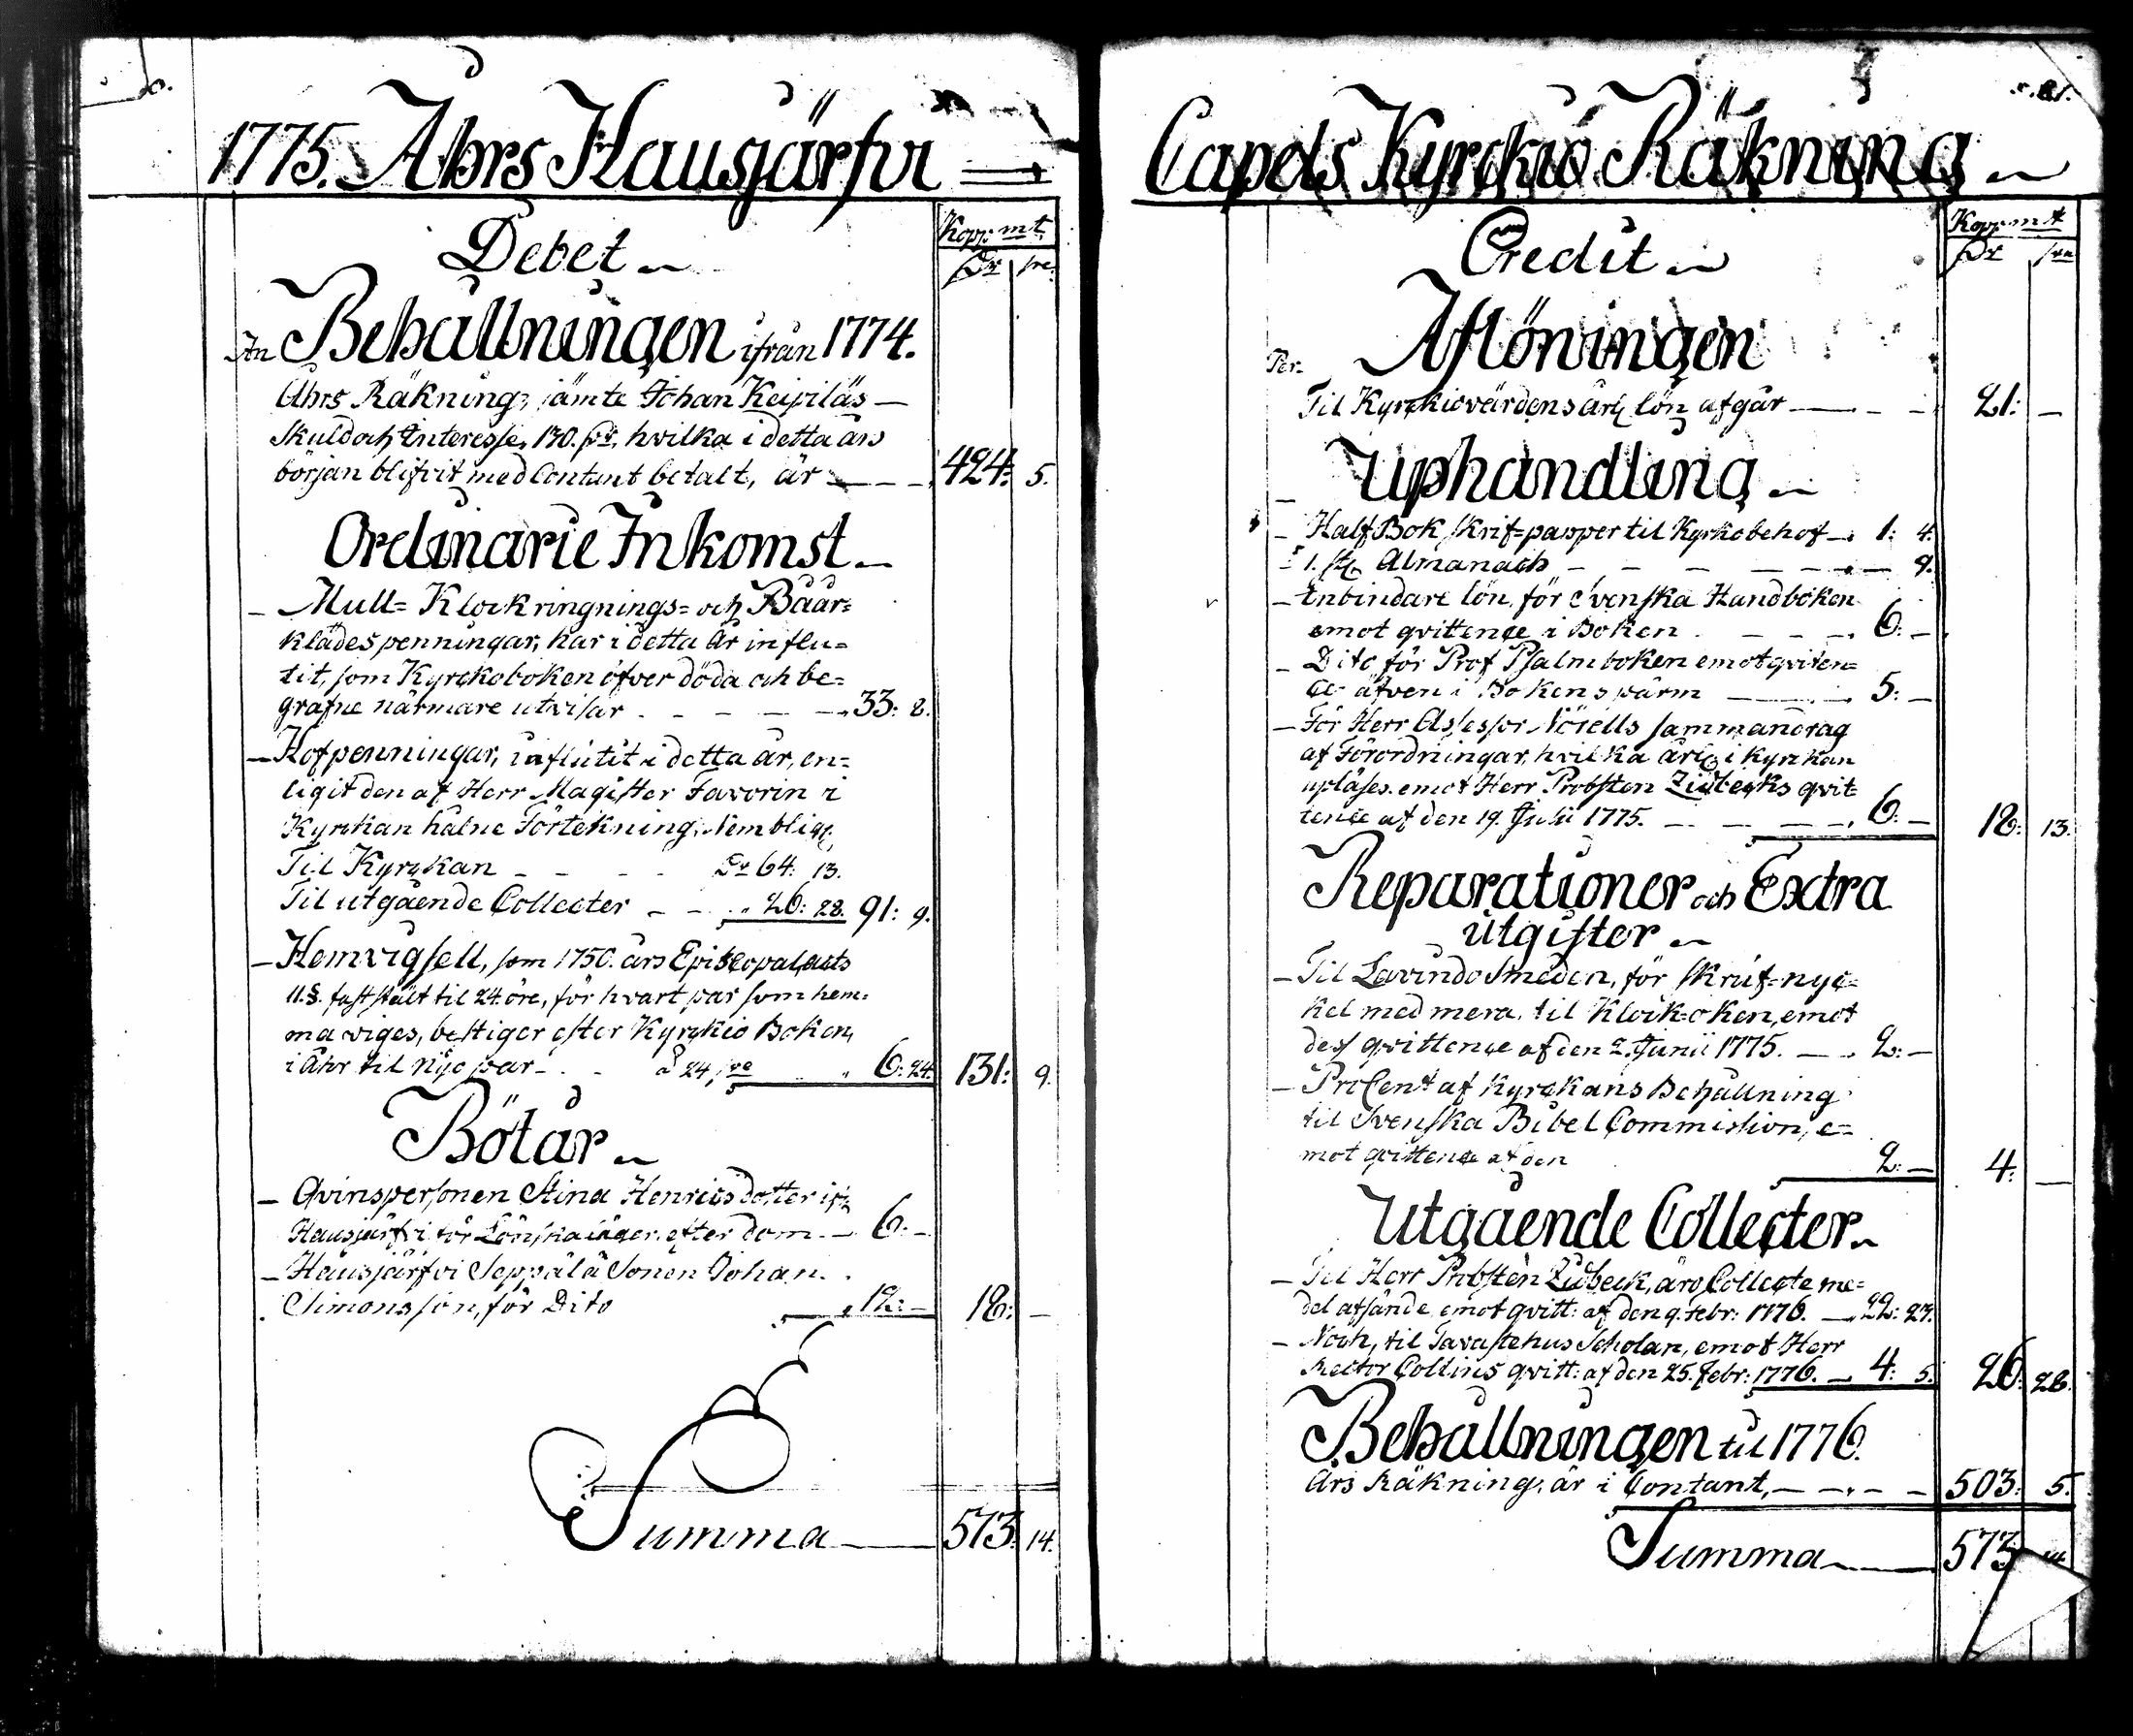 1775. Åhrs Hausjärfvi
Debet
Kopp mt.
Dr öre
An Behållningen ifrån 1774.
Åhrs Räkning, jämte Johan Keipiläs
Skuld och Interesse, 130. Dr, hvilka i detta års
början blifvit med Contant betalt, är — — 424: 5.
Ordinarie Inkomst
— Mull= Klockringnings= och Båår=
klädes penningar, har i detta År influ=
tit, som Kyrckoboken öfver döda och be=
grafne närmare utvisar — — — 33: 8.
— Hofpenningar, influtit i detta år, en=
ligit den af Herr Magister Favorin i
Kyrckan hålne Förtekning, Nembligl.
Til Kyrckan — — Dr 64: 13.
Til utgående Collecter — — 26: 28. 91: 9.
— Hemvigsell, som 1750. års Episcopalacts
11.§. fastställt til 24 öre, för hvart par som hem=
ma viges, bestiger efter Kyrckio Boken,
i Åhr til Nijo par — à 24 öre 6: 24. 131: 9.
Bötar
— Qvinspersonen Stina Henricsdotter ifr.
Hausjärfvi för Lönskaläger, efter dom — 6: —
— Hausjärfvi Seppälä Sonen Johan
Simonsson, för Dito — 12: — 18: —
Summa — 573: 14.
Capels Kyrckio Räkning
Credit
Kopp mt
Dr öre
Per Aflöningen
Til Kyrckiovärdens årl. lön afgår — — 21: —
Uphandling
— Half Bok Skrif=papper til Kyrko behof — 1: 4.
— 1. st. Almanach — — — — 9.
— Inbindare lön, för Svenska Handboken
emot qvittence i Boken — — 6: —
— Dito för Prof Psalmboken emot qviten=
ce äfven i Bokens pärm — 5: —
— För Herr Assessor Noiells sammandrag
af Förordningar, hvilka årl. i Kyrckan
upläses, emot Herr Probsten Zidbecks qvit=
tence af den 19. Julii 1775. — — 6: — 18: 13.
Reparationer och Extra
utgifter
— Til Lavindo Smeden, för skruf=nyc=
kel med mera, til Klock=oken, emot
dess qvittence af den 2. Junii 1775. — 2: —
— ProCent af Kyrckans Behållning
til Svenska Bibel Commission, e=
mot qvittence af den 2: — 4: —
Utgående Collecter
— Til Herr Probsten Zidbeck, äro Collecte me=
del afsände emot qvitt: af den 9. Febr: 1776. — 22: 23.
— Noch, til Tavastehus Scholan, emot Herr
Rector Collins qvitt: af den 25. Febr: 1776. — 4: 5. 26: 28.
Behållningen til 1776.
Års Räkning, är i Contant, — — 503: 5.
Summa — 573